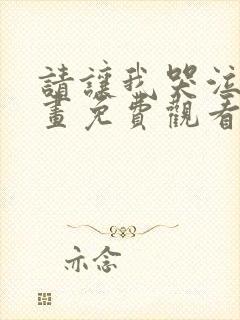 請讓我哭泣
畫免費觀看
亦念